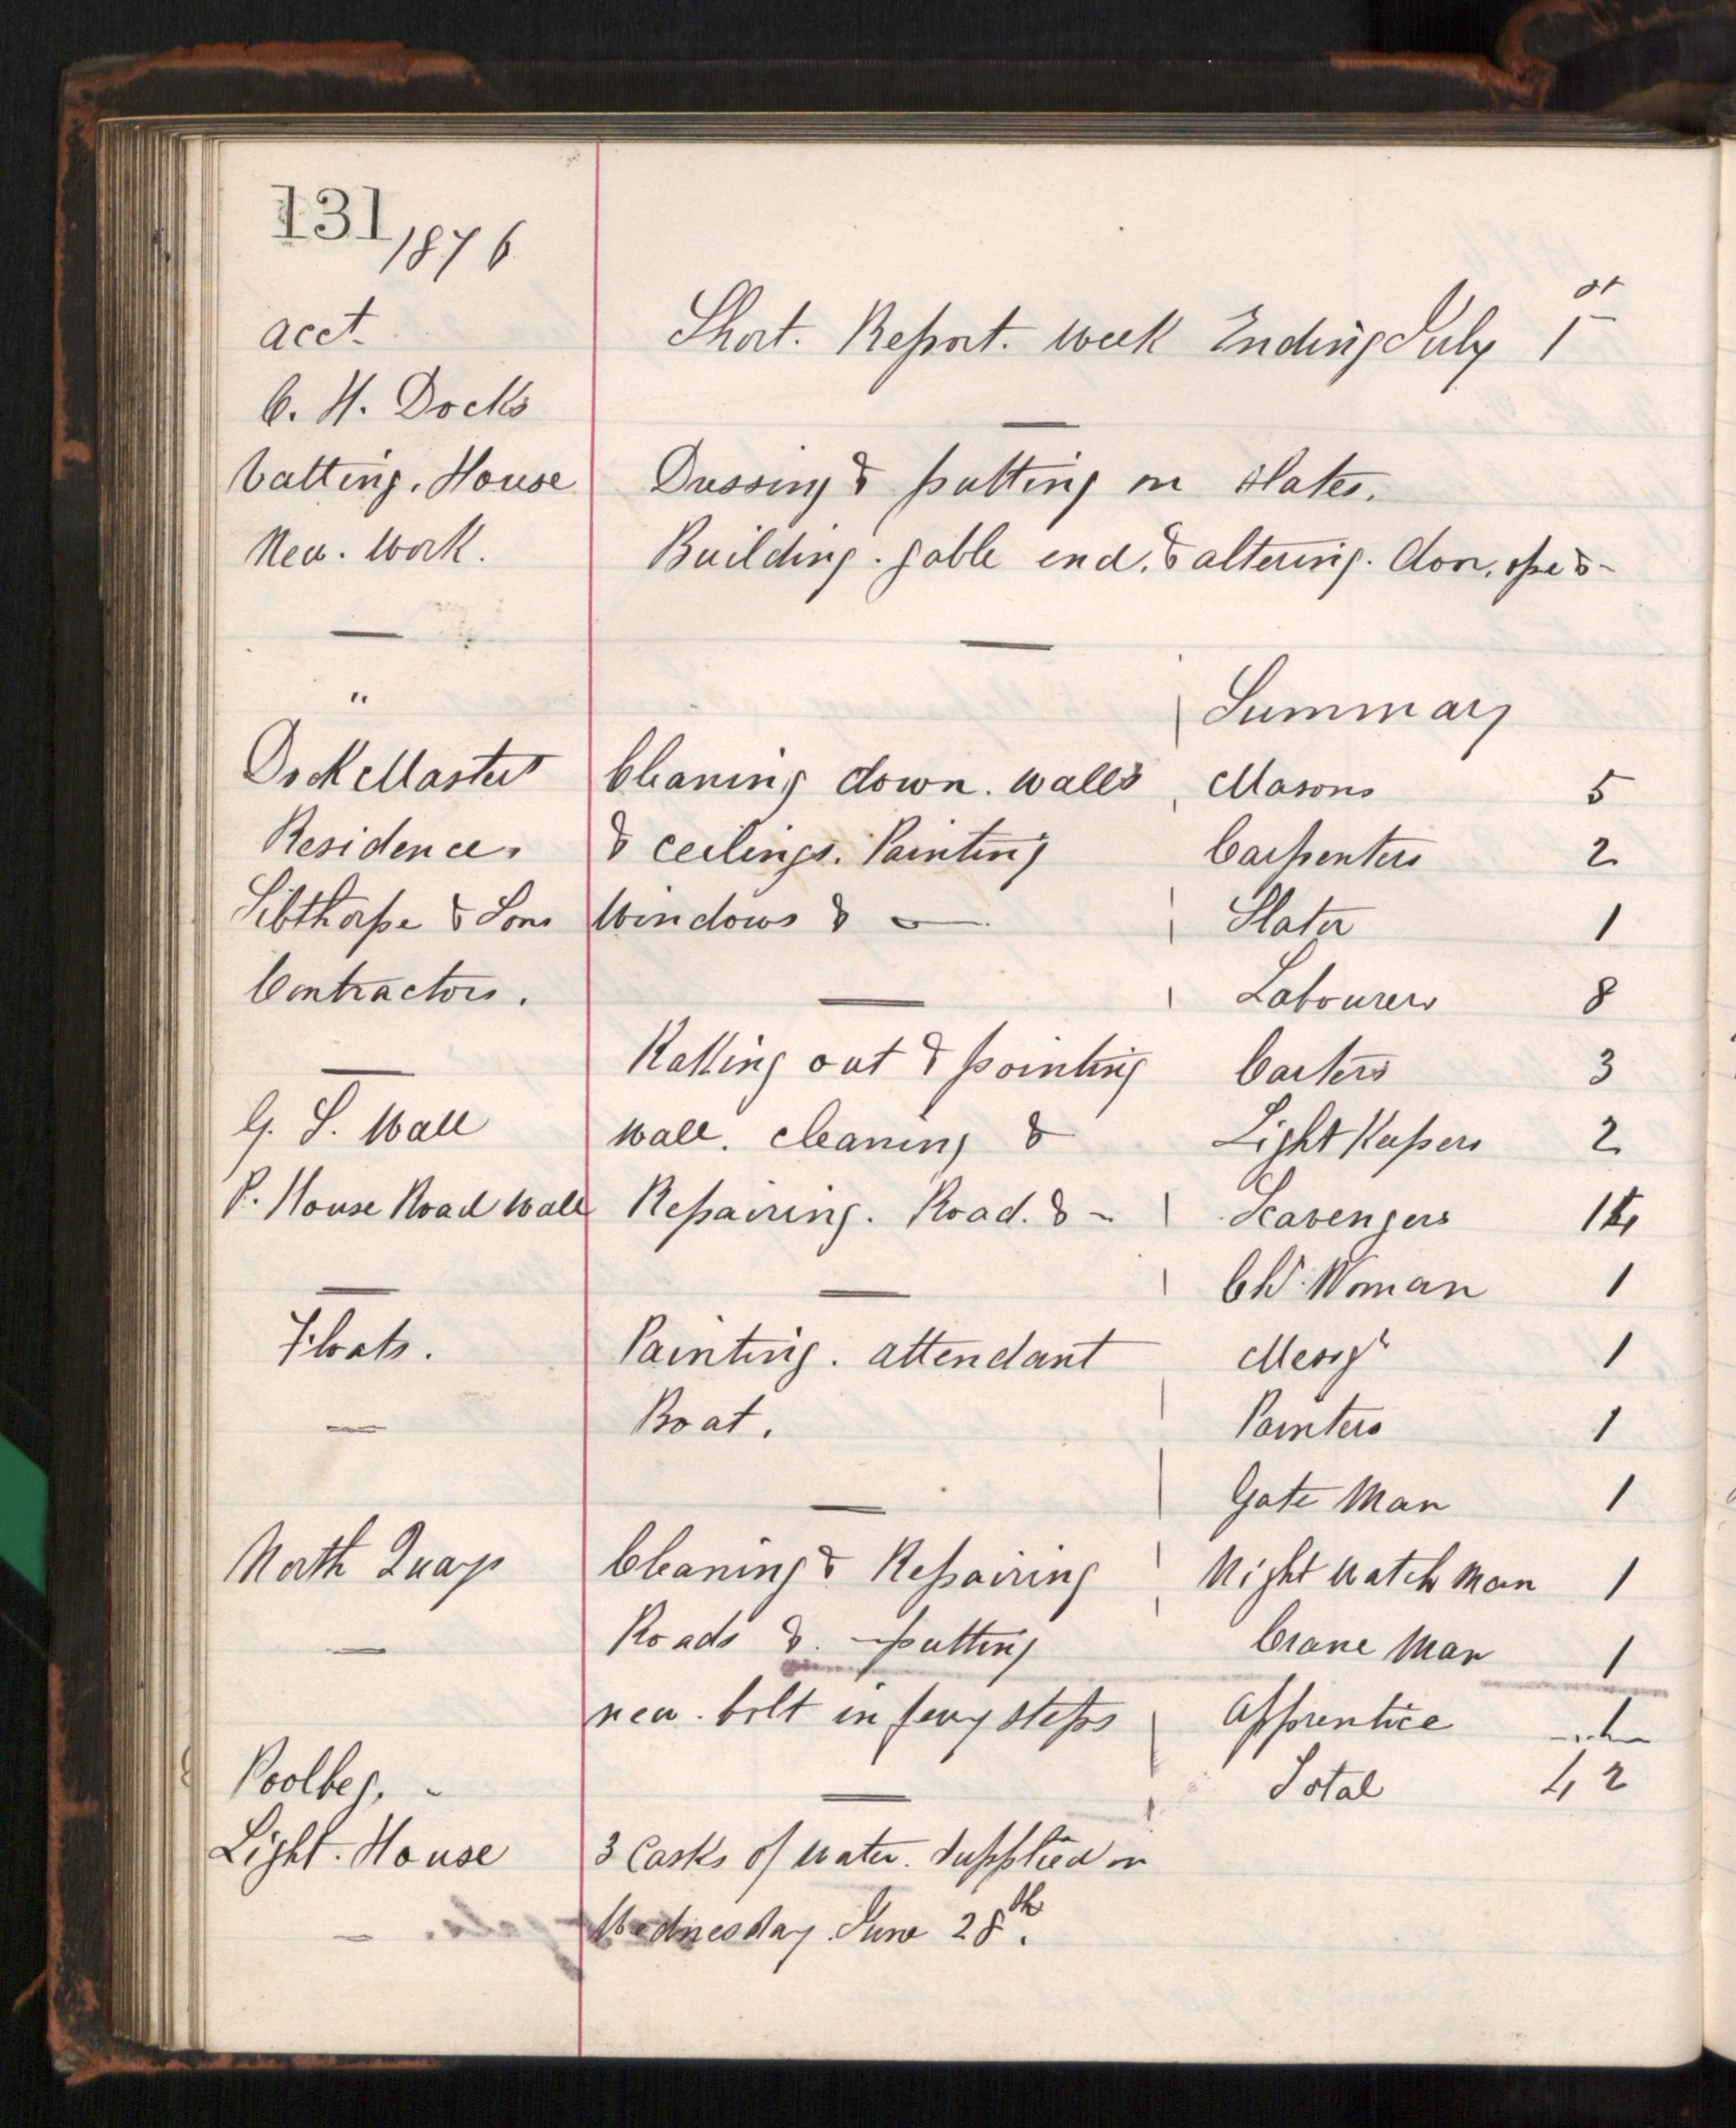 131
1876
acct.
Short. Report. week Ending July 1st
C. H. Docks
Vatting. House
Dressing & putting on slates.
New. Work.
Building. gable end. & altering. door. ope &-
"
Summary
Dock Masters
Cleaning down. walls
Masons 5
Residence.
& ceilings. Painting
Carpenters 2
Sibthorpe & Sons
Windows & -
Slater 1
Contractors.
Labourers 8
Raking out & pointing
Carters 3
G. S. Wall
wall. cleaning &
Light Keepers 2
P. House Road Wall
Repairing. Road. & -
Scavengers 14
Ch. Woman 1
Floats.
Painting. attendant
Messgr 1
Boat.
Painters 1
Gate Man 1
North Quay
Cleaning & Repairing
Night Watch Man 1
Roads &. - putting
Crane Man 1
new. bolt in ferry steps
Apprentice 1
Poolbeg. -
Total 42
Light. House
3 Casks of water. supplied on
Wednesday June 28th.